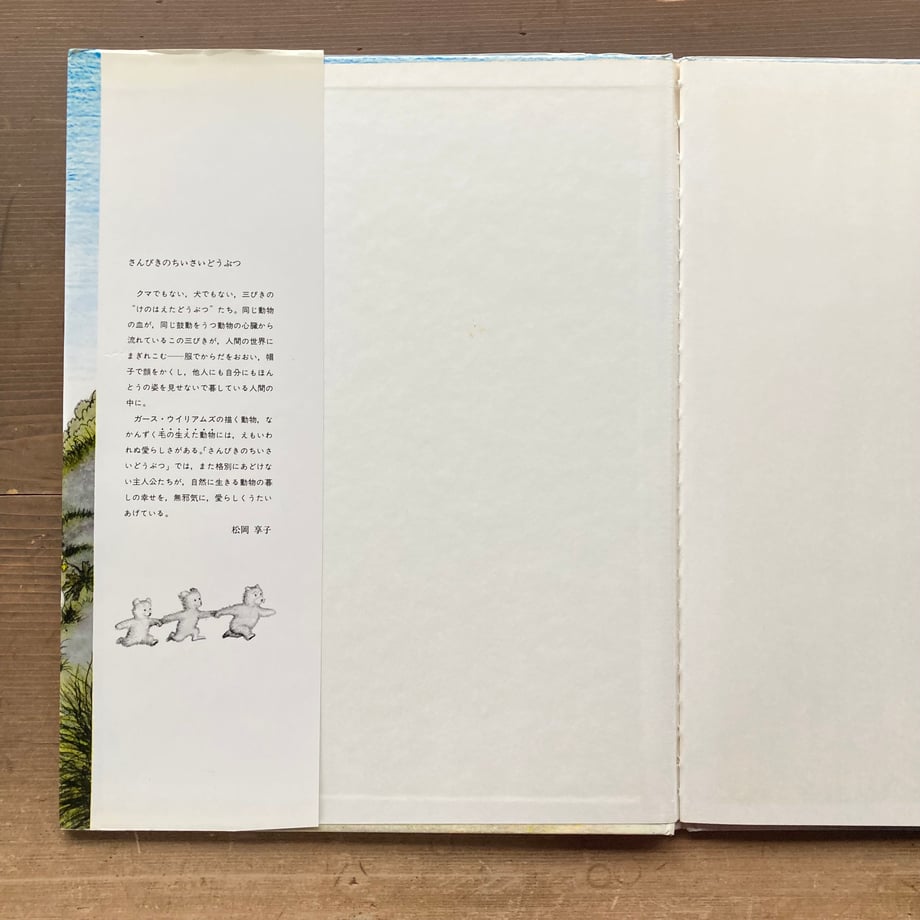 さんびきのちいさいどうぶつ
クマでもない，犬でもない，三びきの
“けのはえたどうぶつ”たち。同じ動物
の血が，同じ鼓動をうつ動物の心臓から
流れているこの三びきが，人間の世界に
まぎれこむ──服でからだをおおい，帽
子で顔をかくし，他人にも自分にもほん
とうの姿を見せないで暮している人間の
中に。
ガース・ウイリアムズの描く動物，な
かんずく毛の生えた動物には，えもいわ
れぬ愛らしさがある。「さんびきのちいさ
いどうぶつ」では，また格別にあどけな
い主人公たちが，自然に生きる動物の暮
しの幸せを，無邪気に，愛らしくうたい
あげている。
松岡 享子